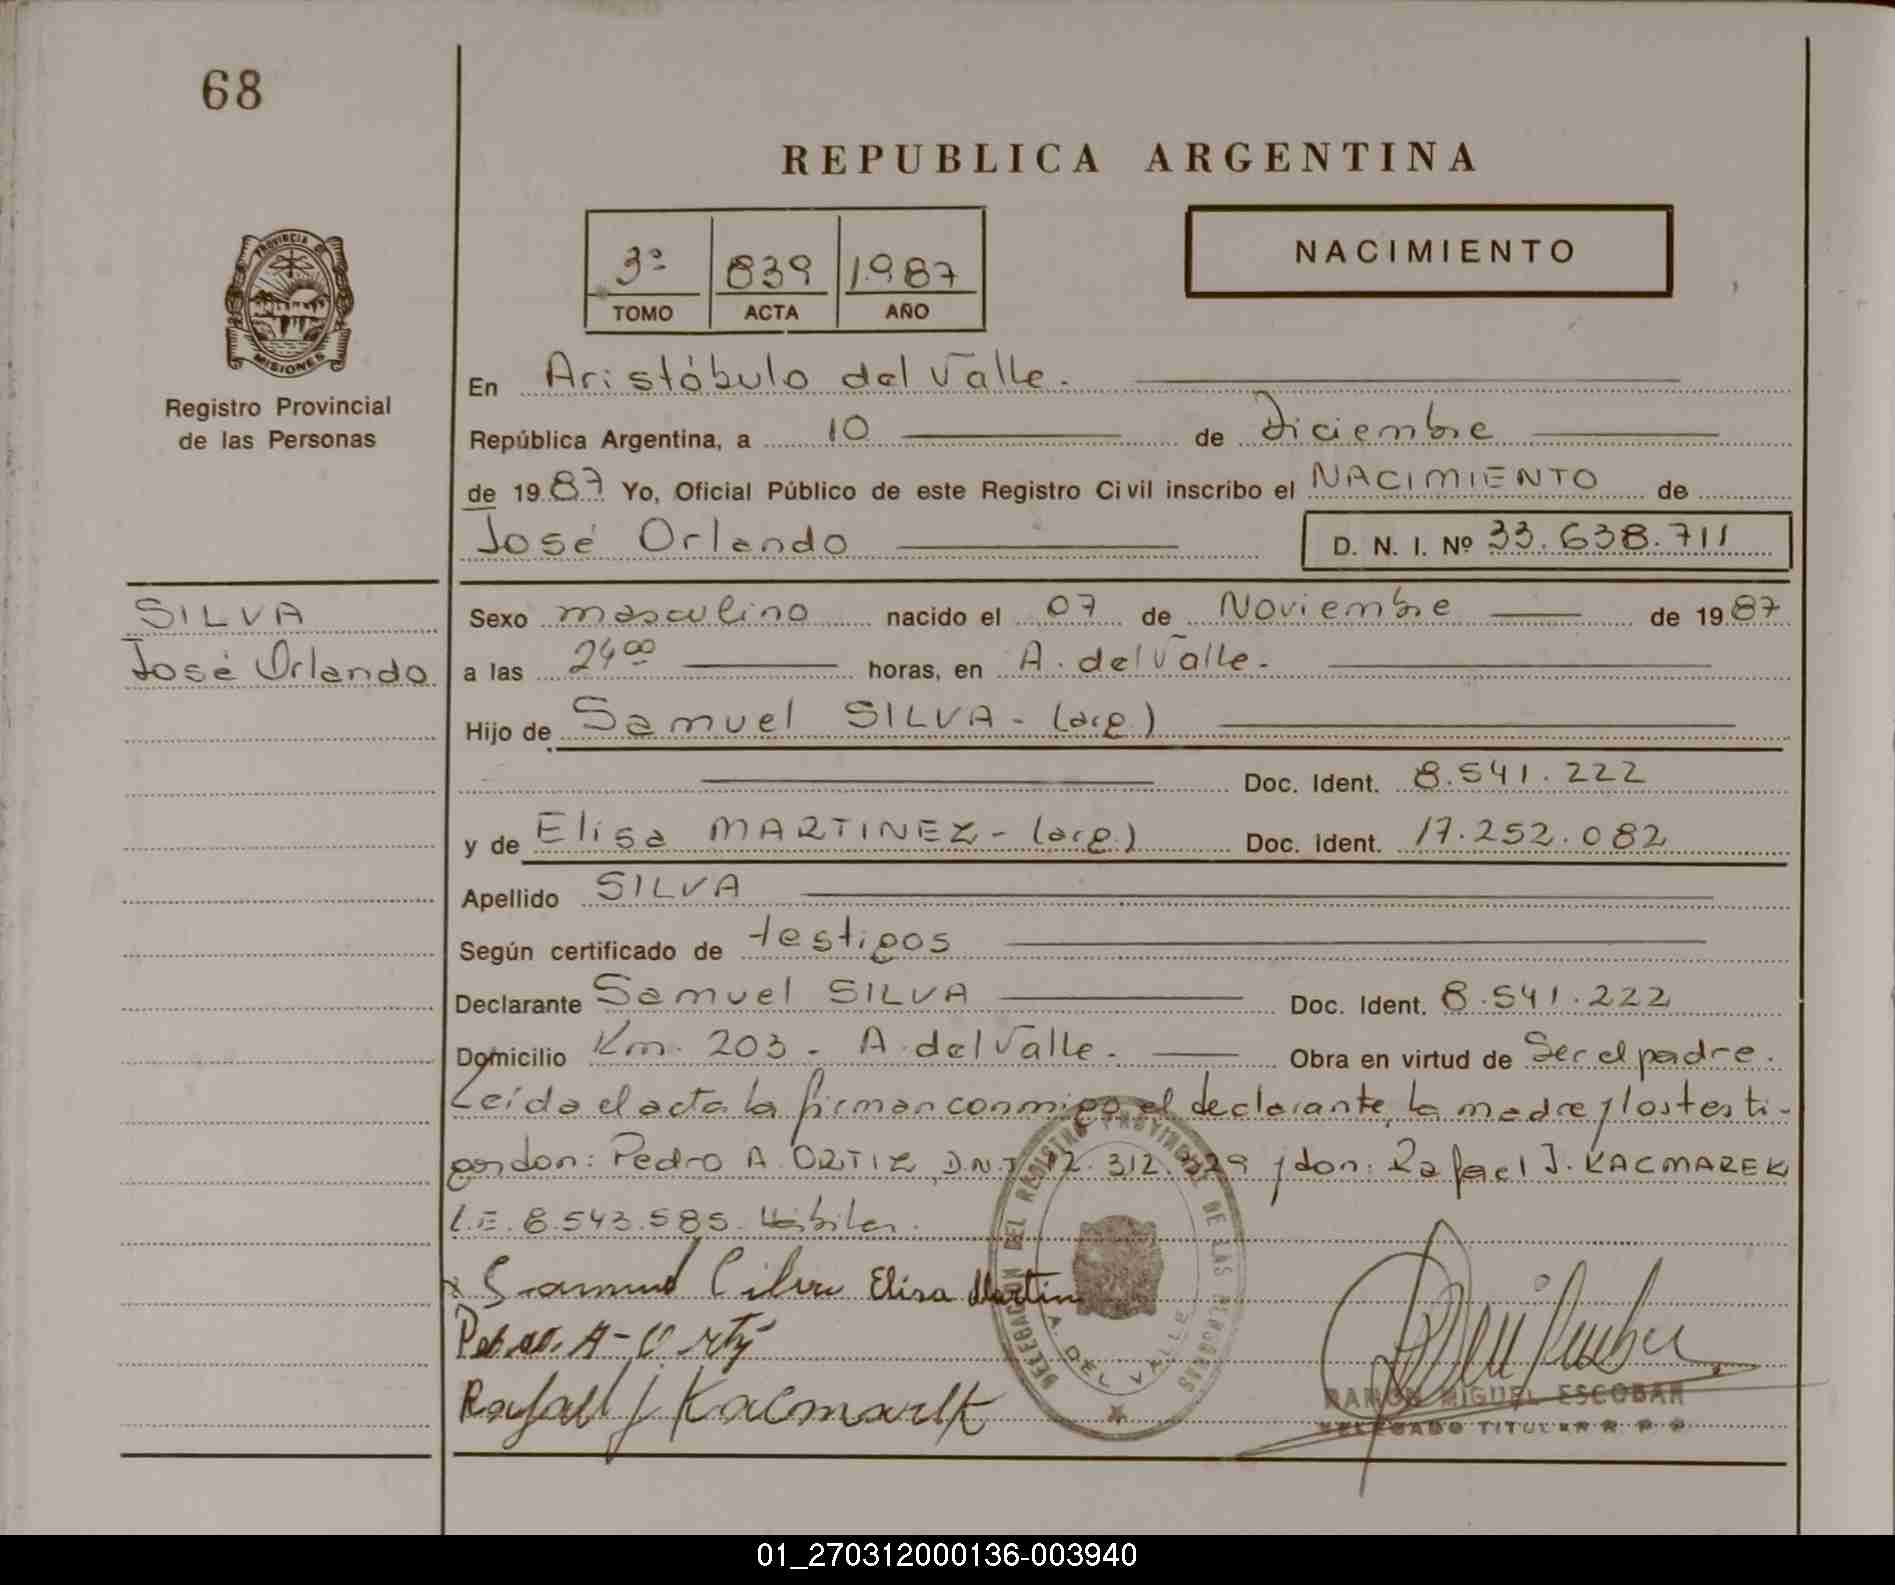 68
REPUBLICA ARGENTINA
3º 839 1.987
TOMO ACTA AÑO
NACIMIENTO
PROVINCIA DE
MISIONES
Registro Provincial
de las Personas
En Aristóbulo del Valle.
República Argentina, a 10 de Diciembre
de 1987 Yo, Oficial Público de este Registro Civil inscribo el NACIMIENTO de
José Orlando D. N. I. Nº 33.638.711
SILVA
José Orlando
Sexo masculino nacido el 07 de Noviembre de 1987
a las 24⁰⁰ horas, en A. del Valle.
Hijo de Samuel SILVA - (arg.)
Doc. Ident. 8.541.222
y de Elisa MARTINEZ - (arg.) Doc. Ident. 17.252.082
Apellido SILVA
Según certificado de testigos
Declarante Samuel SILVA Doc. Ident. 8.541.222
Domicilio Km. 203 - A. del Valle. Obra en virtud de Ser el padre.
Leída el acta la firman conmigo el declarante, la madre y los testi-
gos don: Pedro A. ORTIZ, D.N.I 12.312. y don: Rafael J. KACMAREK
L.E. 8.543.585. Hábiles.
Samuel Silva Elisa Martin
Pedro A - Ortiz
Rafael J Kacmarek
DELEGACION DEL REGISTRO PROVINCIAL DE LAS PERSONAS
A. DEL VALLE
RAMON MIGUEL ESCOBAR
DELEGADO TITULAR R. P. P.
01_270312000136-003940